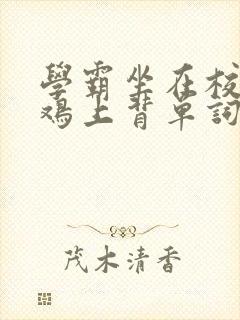 學霸坐在校
鸡上背單詞
茂木清香